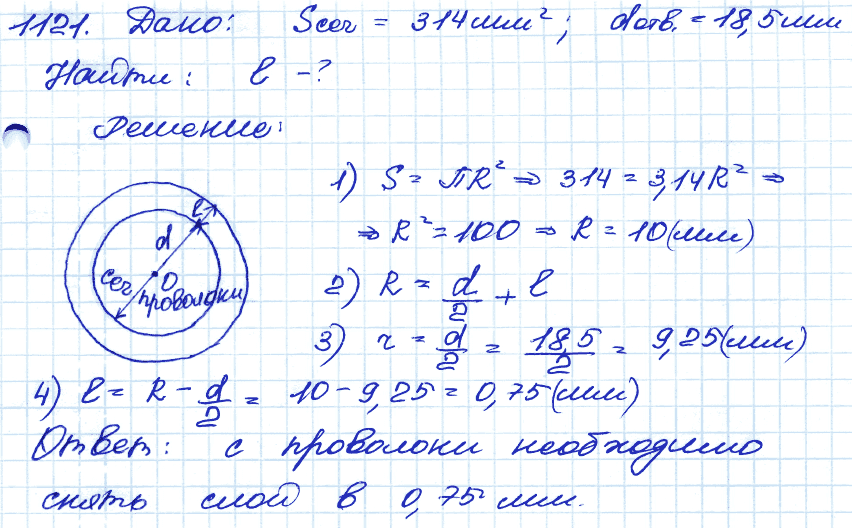 1121. Дано: Sсеч = 314 мм²; dотв. = 18,5 мм
Найти: ℓ - ?
Решение:
1) S = πR² ⇒ 314 = 3,14R² ⇒
⇒ R² = 100 ⇒ R = 10 (мм)
ℓ
d
O
сеч
проволоки
2) R = d/2 + ℓ
3) r = d/2 = 18,5/2 = 9,25 (мм)
4) ℓ = R - d/2 = 10 - 9,25 = 0,75 (мм)
Ответ: с проволоки необходимо
снять слой в 0,75 мм.